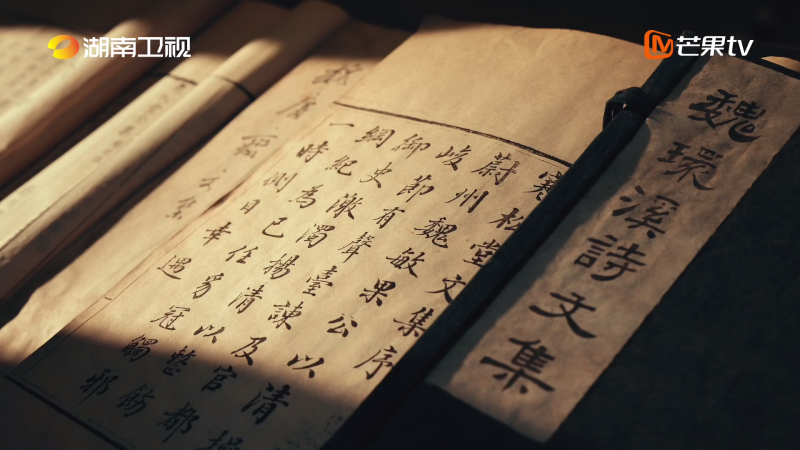 湖南卫视
芒果tv
魏環溪詩文集
寒松堂文集序
蔚州魏敏果公以清
峻節有聲臺諫及官都
御史澂濁揚清以整飭
綱紀為已任豸冠觸邪
一時側目幸遇
文集